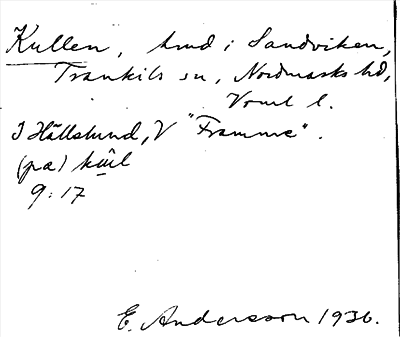 Kullen, hmd i Sandviken,
Trankils sn, Nordmarks hd,
Vrml l.
I Hällelund, V "Framme".
(pa) kɯ̂l
9:17
E. Andersson 1936.